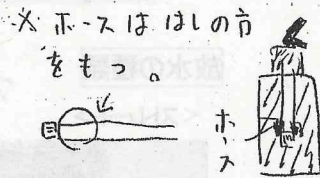 ※ ホースは はしの方
をもつ。
ホース